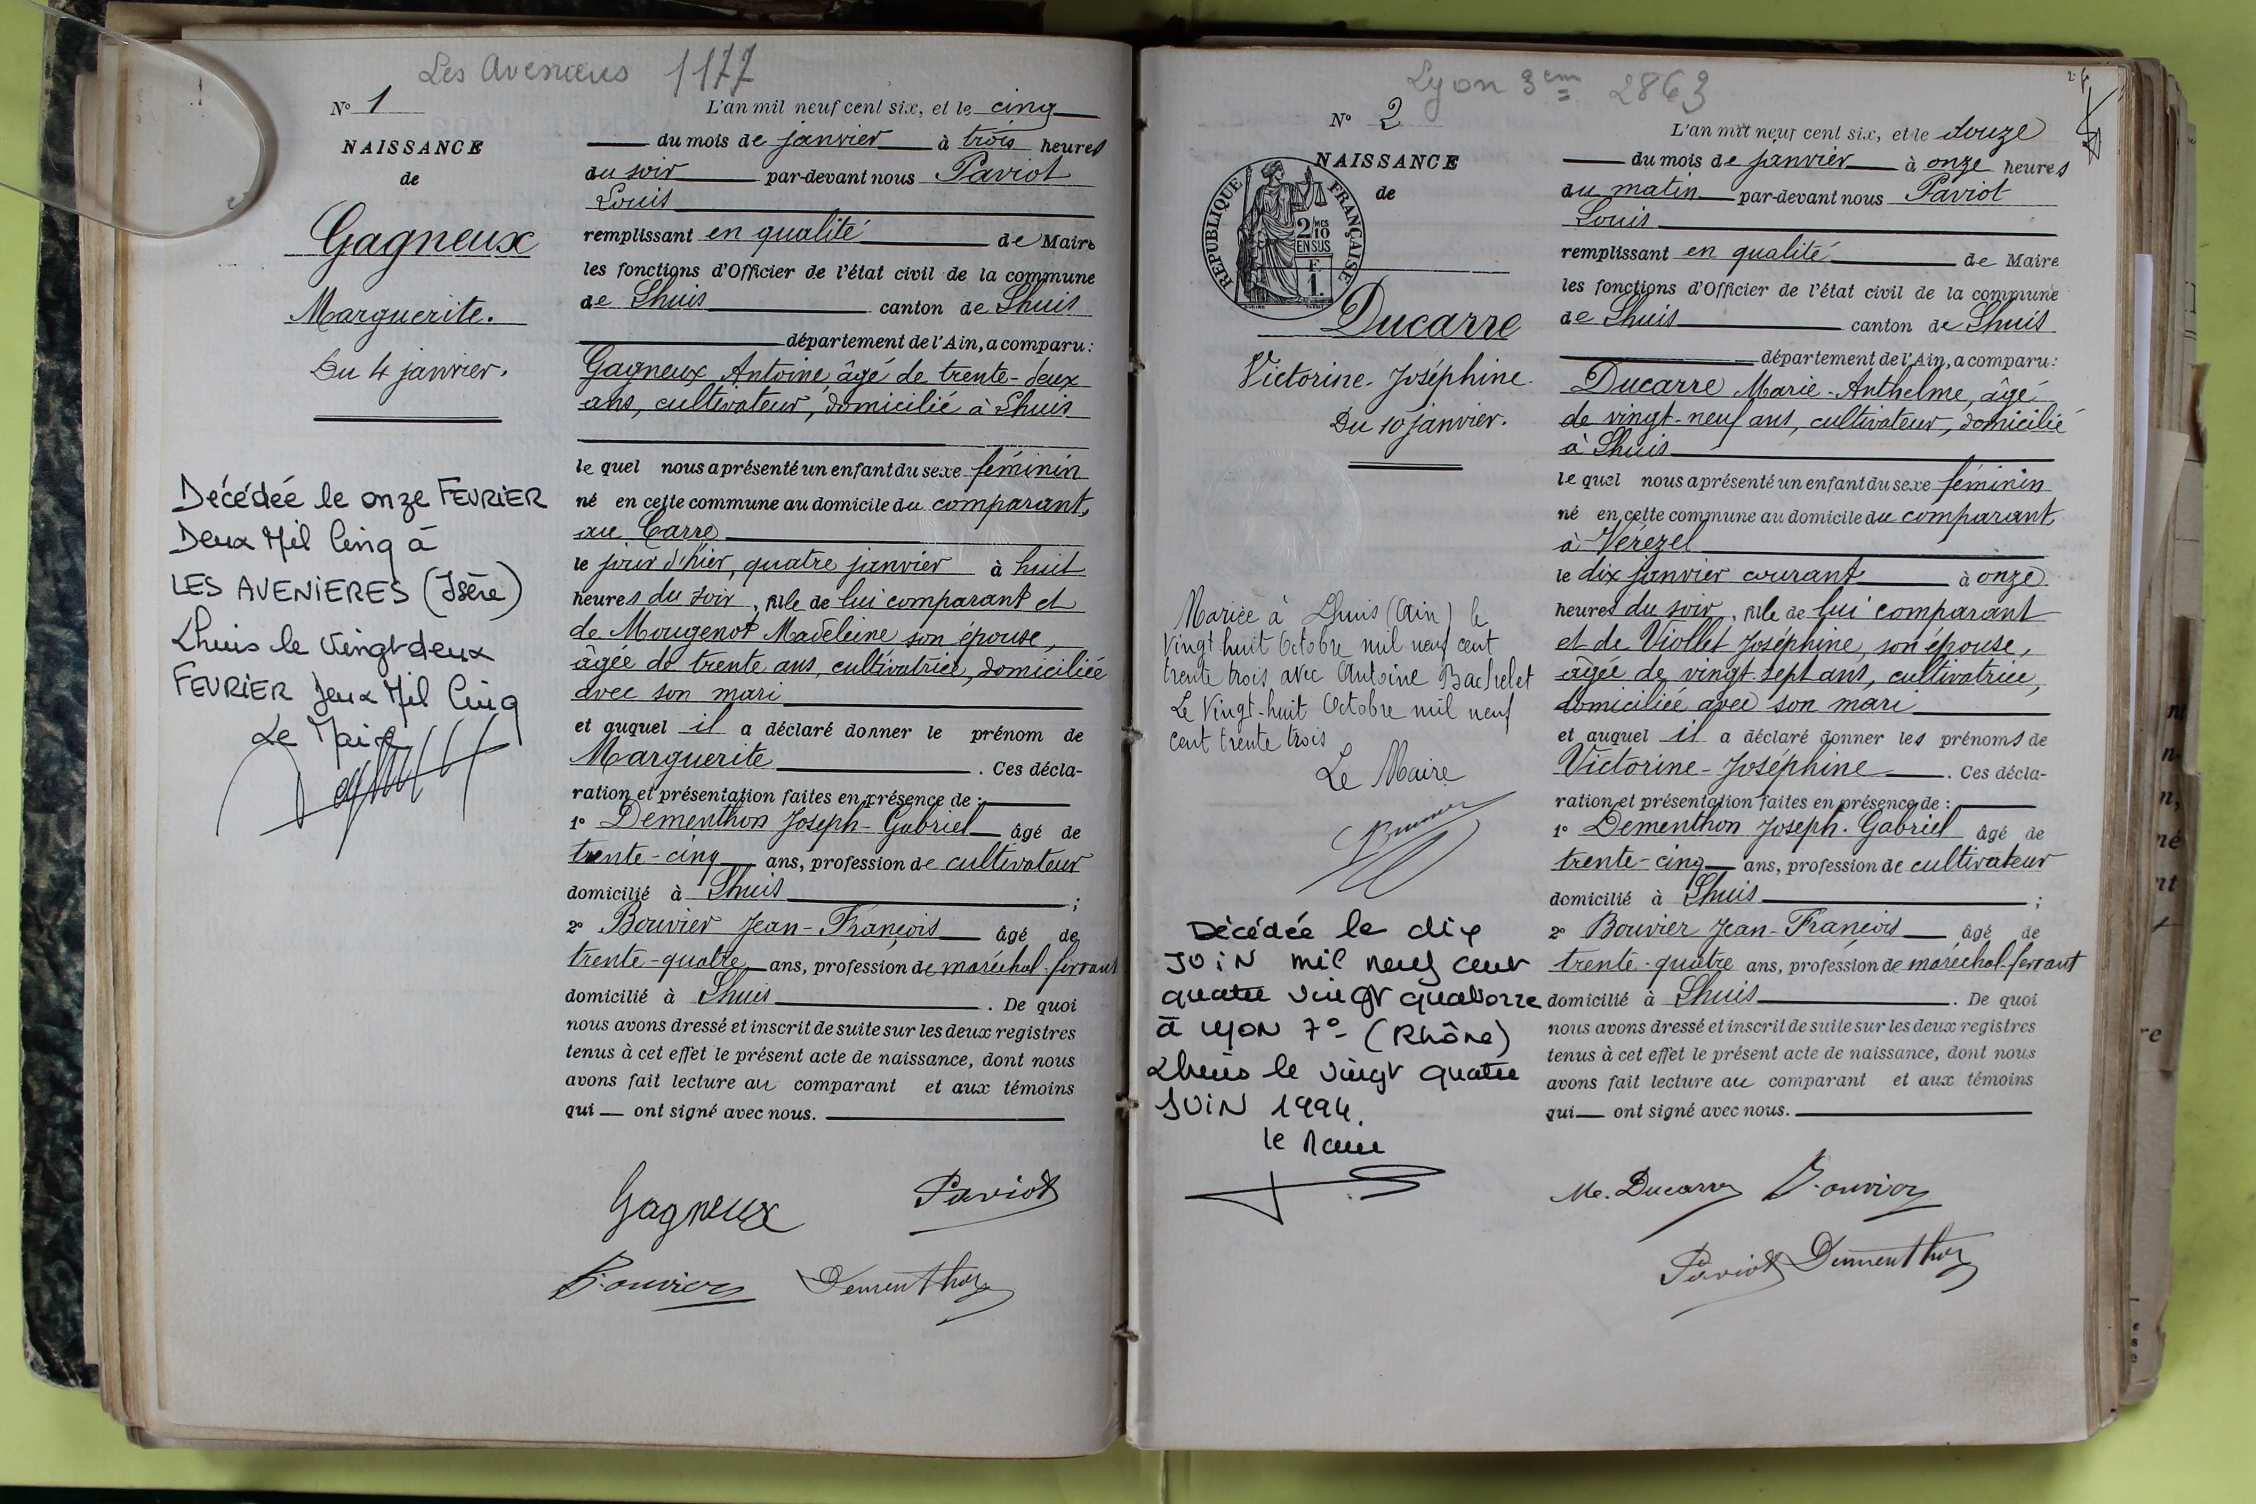 Les Avenieres 1177
N° 1
NAISSANCE
de
Gagneux
Marguerite.
Du 4 janvier.
Décédée le onze FEVRIER
Deux Mil Cinq à
LES AVENIERES (Isère)
Lhuis le Vingt deux
FEVRIER Deux Mil Cinq
Le Maire
L'an mil neuf cent six, et le cinq
du mois de janvier à trois heures
du soir par-devant nous Paviot
Louis
remplissant en qualité de Maire
les fonctions d'Officier de l'état civil de la commune
de Lhuis canton de Lhuis
département de l'Ain, a comparu :
Gagneux Antoine, âgé de trente-deux
ans, cultivateur, domicilié à Lhuis
le quel nous a présenté un enfant du sexe féminin
né en cette commune au domicile du comparant,
au Carre
le jour d'hier, quatre janvier à huit
heures du soir, fille de lui comparant et
de Mougenot Madeleine son épouse,
âgée de trente ans, cultivatrice, domiciliée
avec son mari
et auquel il a déclaré donner le prénom de
Marguerite. Ces décla-
ration et présentation faites en présence de :
1° Dementhon Joseph-Gabriel âgé de
trente-cinq ans, profession de cultivateur
domicilié à Lhuis ;
2° Bouvier Jean-François âgé de
trente-quatre ans, profession de maréchal-ferrant
domicilié à Lhuis. De quoi
nous avons dressé et inscrit de suite sur les deux registres
tenus à cet effet le présent acte de naissance, dont nous
avons fait lecture au comparant et aux témoins
qui ont signé avec nous.
Gagneux Paviot
Bouvier Dementhon
Lyon 3em 2863
N° 2
NAISSANCE
de
REPUBLIQUE FRANÇAISE
2/10 MES
EN SUS
F
1.
Ducarre
Victorine-Joséphine.
Du 10 janvier.
Mariée à Lhuis (Ain) le
Vingt huit Octobre mil neuf cent
trente trois avec Antoine Bachelet
Le Vingt-huit Octobre mil neuf
cent trente trois
Le Maire
Décédée le dix
JUIN mil neuf cent
quatre vingt quatorze
à Lyon 7° (Rhône)
Lhuis le vingt quatre
JUIN 1994.
le Maire
2
L'an mil neuf cent six, et le douze
du mois de janvier à onze heures
du matin par-devant nous Paviot
Louis
remplissant en qualité de Maire
les fonctions d'Officier de l'état civil de la commune
de Lhuis canton de Lhuis
département de l'Ain, a comparu :
Ducarre Marie-Anthelme, âgé
de vingt-neuf ans, cultivateur, domicilié
à Lhuis
le quel nous a présenté un enfant du sexe féminin
né en cette commune au domicile du comparant
à Vérézel
le dix janvier courant à onze
heures du soir, fille de lui comparant
et de Viollet Joséphine, son épouse,
âgée de vingt-sept ans, cultivatrice,
domiciliée avec son mari
et auquel il a déclaré donner les prénoms de
Victorine-Joséphine. Ces décla-
ration et présentation faites en présence de :
1° Dementhon Joseph-Gabriel âgé de
trente-cinq ans, profession de cultivateur
domicilié à Lhuis ;
2° Bouvier Jean-François âgé de
trente-quatre ans, profession de maréchal-ferrant
domicilié à Lhuis. De quoi
nous avons dressé et inscrit de suite sur les deux registres
tenus à cet effet le présent acte de naissance, dont nous
avons fait lecture au comparant et aux témoins
qui ont signé avec nous.
Me. Ducarre Bouvier
Paviot Dementhon